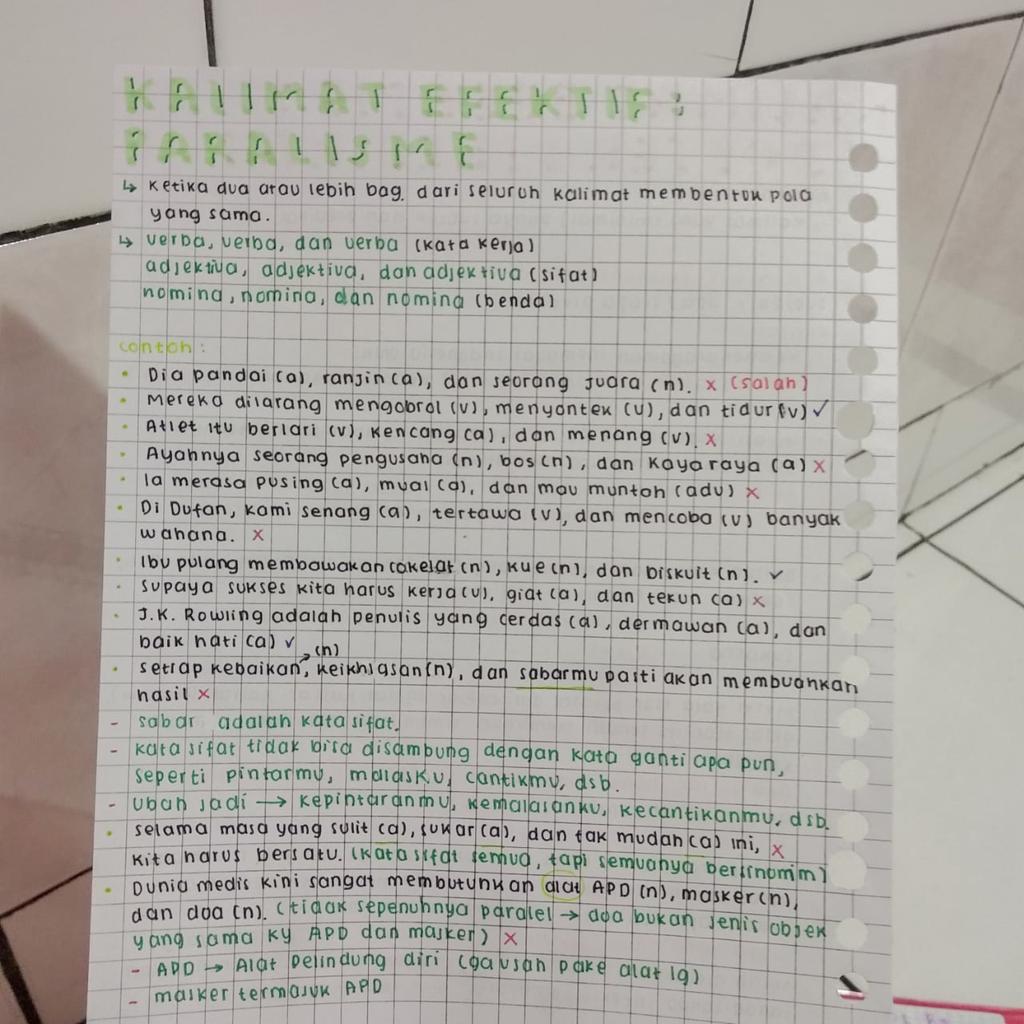 KALIMAT EFEKTIF :
PARALISME
↳ Ketika dua atau lebih bag. dari seluruh kalimat membentuk pola
yang sama.
↳ verba, verba, dan verba (kata kerja)
adjektiva, adjektiva, dan adjektiva (sifat)
nomina, nomina, dan nomina (benda)
contoh :
• Dia pandai (a), ranjin (a), dan seorang juara (n). x (salah)
• Mereka dilarang mengobrol (v), menyontek (v), dan tidur (v) ✓
• Atlet itu berlari (v), kencang (a), dan menang (v). x
• Ayahnya seorang pengusaha (n), bos (n), dan kaya raya (a) x
• Ia merasa pusing (a), mual (a), dan mau muntah (adv) x
• Di Dufan, kami senang (a), tertawa (v), dan mencoba (v) banyak
wahana. x
• Ibu pulang membawakan cokelat (n), kue (n), dan biskuit (n). ✓
• supaya sukses kita harus kerja (v), giat (a), dan tekun (a) x
• J.K. Rowling adalah penulis yang cerdas (a), dermawan (a), dan
baik hati (a) ✓
• setiap kebaikan, (n) keikhlasan (n), dan sabarmu pasti akan membuahkan
hasil x
- sabar adalah kata sifat.
- kata sifat tidak bisa disambung dengan kata ganti apa pun,
seperti pintarmu, malasku, cantikmu, dsb.
- Ubah jadi → kepintaranmu, kemalasanku, kecantikanmu, dsb.
• selama masa yang sulit (a), sukar (a), dan tak mudah (a) ini, x
kita harus bersatu. (kata sifat semua, tapi semuanya bersinomim)
• Dunia medis kini sangat membutuhkan alat APD (n), masker (n),
dan doa (n). (tidak sepenuhnya paralel → doa bukan jenis objek
yang sama ky APD dan masker) x
- APD → Alat pelindung diri (gausah pake alat lg)
- masker termasuk APD